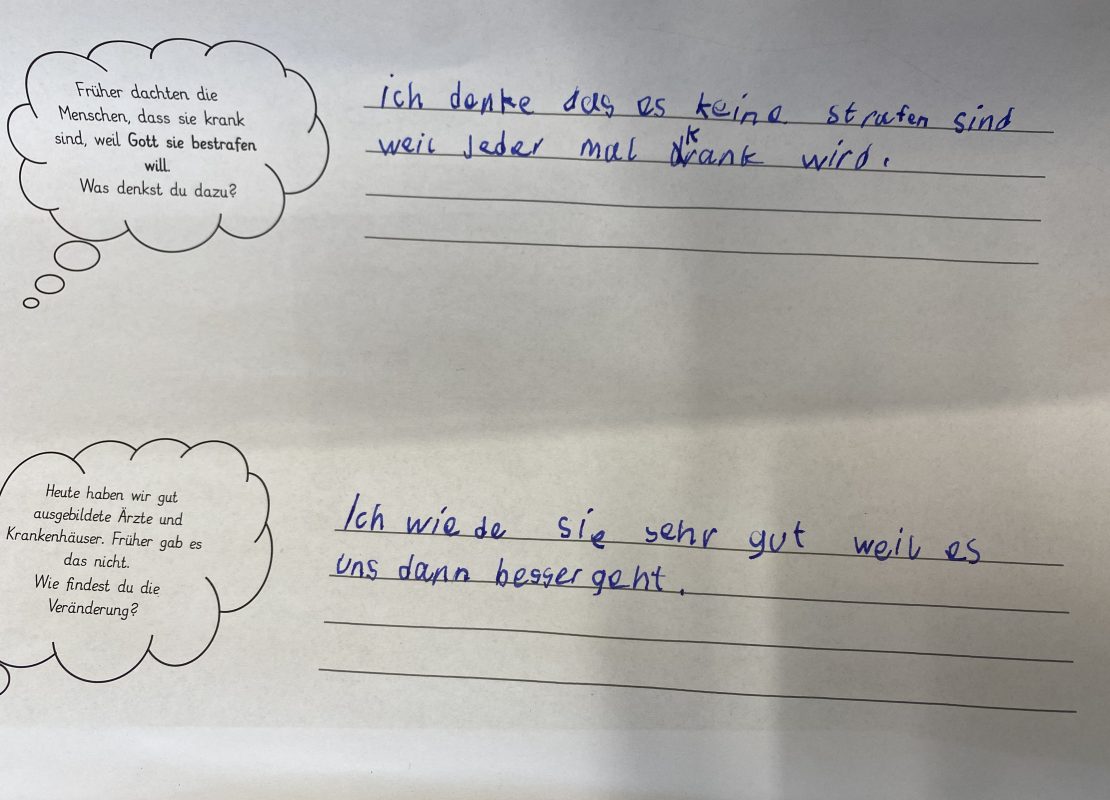 Früher dachten die
Menschen, dass sie krank
sind, weil Gott sie bestrafen
will.
Was denkst du dazu?
ich denke das es keine strafen sind
weil Jeder mal krank wird.
Heute haben wir gut
ausgebildete Ärzte und
Krankenhäuser. Früher gab es
das nicht.
Wie findest du die
Veränderung?
Ich wiede sie sehr gut weil es
uns dann besser geht.